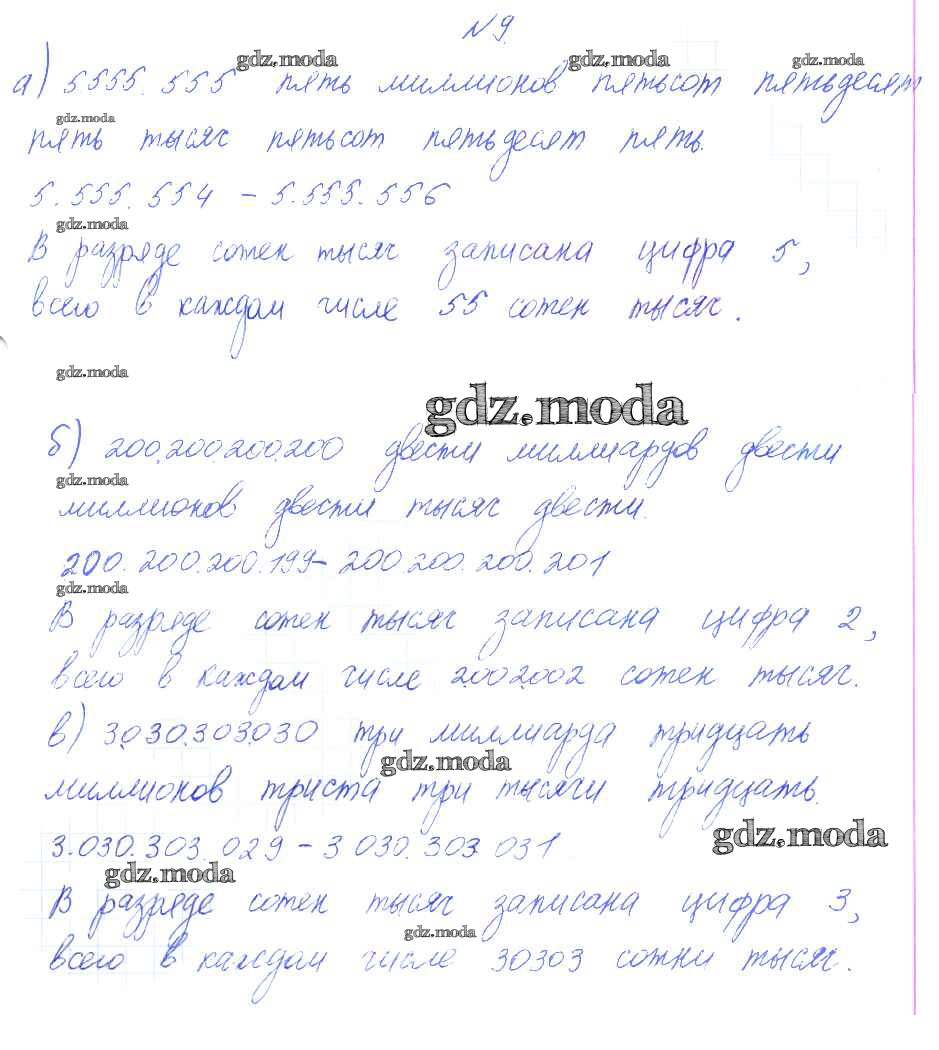 №9.
gdz.moda gdz.moda gdz.moda
а) 5555.555 пять миллионов пятьсот пятьдесят
gdz.moda
пять тысяч пятьсот пятьдесят пять.
5.555.554 - 5.555.556
gdz.moda
В разряде сотен тысяч записана цифра 5,
всего в каждом числе 55 сотен тысяч.
gdz.moda
gdz.moda
б) 200.200.200.200 двести миллиардов двести
gdz.moda
миллионов двести тысяч двести.
200.200.200.199- 200.200.200.201
gdz.moda
В разряде сотен тысяч записана цифра 2,
всего в каждом числе 2.002.002 сотен тысяч.
в) 3.030.303.030 три миллиарда тридцать
gdz.moda
миллионов триста три тысячи тридцать.
gdz.moda
3.030.303.029 - 3 030.303.031
gdz.moda
В разряде сотен тысяч записана цифра 3,
gdz.moda
всего в каждом числе 30303 сотни тысяч.